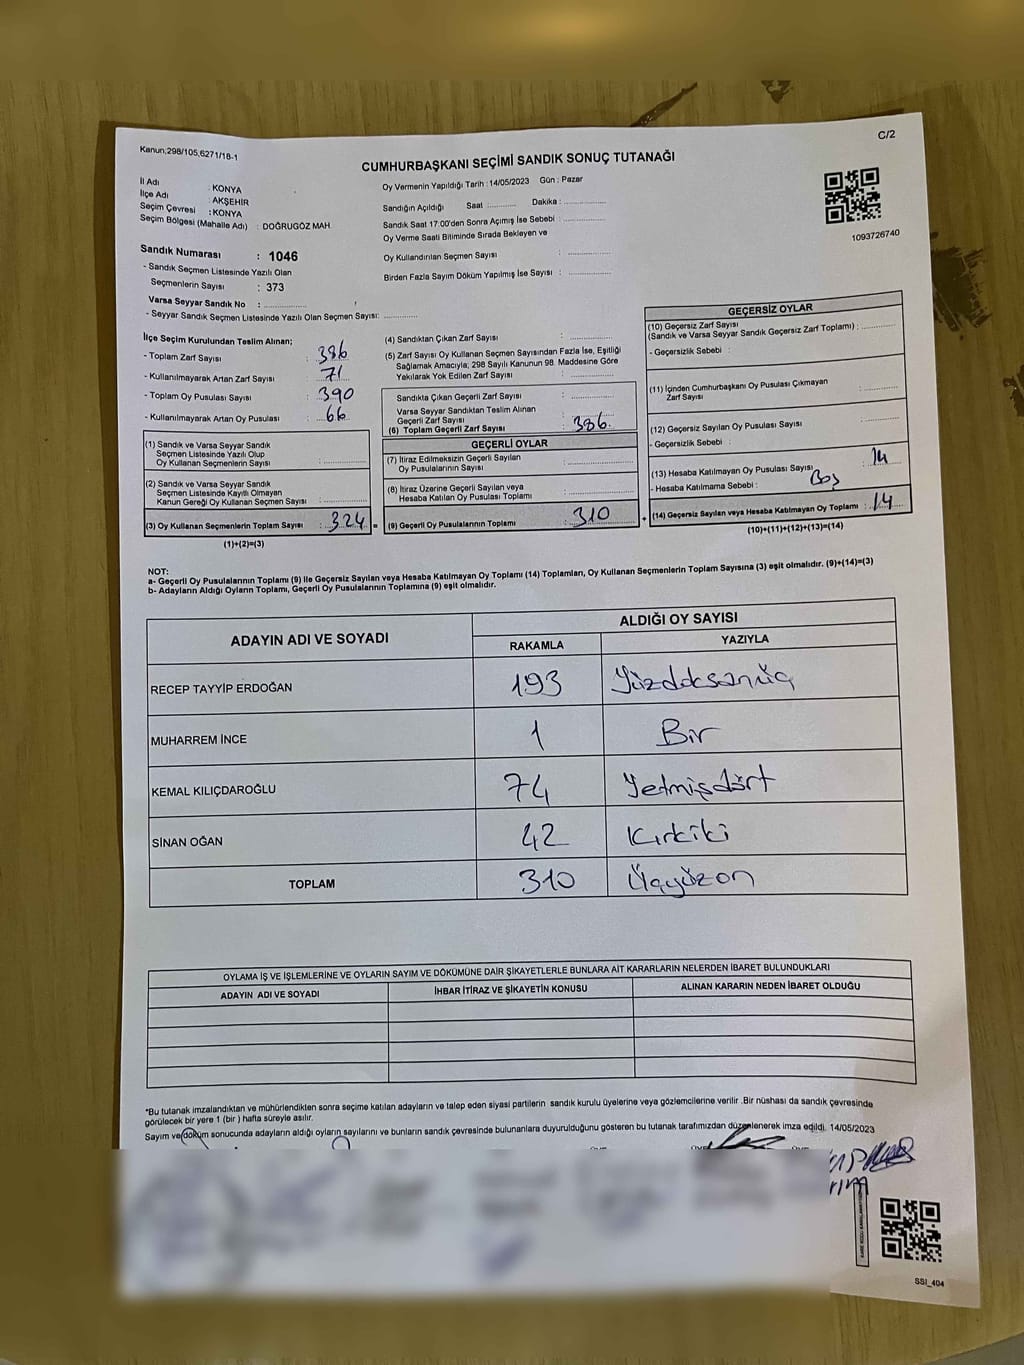 C/2
Kanun;298/105,6271/18-1
CUMHURBAŞKANI SEÇİMİ SANDIK SONUÇ TUTANAĞI
İl Adı : KONYA
İlçe Adı : AKŞEHİR
Seçim Çevresi : KONYA
Seçim Bölgesi (Mahalle Adı) : DOĞRUGÖZ MAH.
Sandık Numarası : 1046
- Sandık Seçmen Listesinde Yazılı Olan
Seçmenlerin Sayısı : 373
Varsa Seyyar Sandık No : ..............
- Seyyar Sandık Seçmen Listesinde Yazılı Olan Seçmen Sayısı: ..............
Oy Vermenin Yapıldığı Tarih : 14/05/2023 Gün : Pazar
Sandığın Açıldığı Saat : ............ Dakika : ..............
Sandık Saat 17:00'den Sonra Açımış İse Sebebi : ..............
Oy Verme Saati Bitiminde Sırada Bekleyen ve
Oy Kullandırılan Seçmen Sayısı : ..............
Birden Fazla Sayım Döküm Yapılmış İse Sayısı : ..............
1093726740
İlçe Seçim Kurulundan Teslim Alınan;
- Toplam Zarf Sayısı : 386
- Kullanılmayarak Artan Zarf Sayısı : 71
- Toplam Oy Pusulası Sayısı : 390
- Kullanılmayarak Artan Oy Pusulası : 66
(1) Sandık ve Varsa Seyyar Sandık
Seçmen Listesinde Yazılı Olup
Oy Kullanan Seçmenlerin Sayısı : ..............
(2) Sandık ve Varsa Seyyar Sandık
Seçmen Listesinde Kayıtlı Olmayan
Kanun Gereği Oy Kullanan Seçmen Sayısı : ..............
(3) Oy Kullanan Seçmenlerin Toplam Sayısı : 324 =
(1)+(2)=(3)
(4) Sandıktan Çıkan Zarf Sayısı : ..............
(5) Zarf Sayısı Oy Kullanan Seçmen Sayısından Fazla İse, Eşitliği
Sağlamak Amacıyla; 298 Sayılı Kanunun 98. Maddesine Göre
Yakılarak Yok Edilen Zarf Sayısı : ..............
Sandıkta Çıkan Geçerli Zarf Sayısı : ..............
Varsa Seyyar Sandıktan Teslim Alınan
Geçerli Zarf Sayısı : ..............
(6) Toplam Geçerli Zarf Sayısı : 386
GEÇERLİ OYLAR
(7) İtiraz Edilmeksizin Geçerli Sayılan
Oy Pusulalarının Sayısı : ..............
(8) İtiraz Üzerine Geçerli Sayılan veya
Hesaba Katılan Oy Pusulası Toplamı : ..............
(9) Geçerli Oy Pusulalarının Toplamı : 310 +
GEÇERSİZ OYLAR
(10) Geçersiz Zarf Sayısı
(Sandık ve Varsa Seyyar Sandık Geçersiz Zarf Toplamı) : ..............
- Geçersizlik Sebebi :
(11) İçinden Cumhurbaşkanı Oy Pusulası Çıkmayan
Zarf Sayısı : ..............
(12) Geçersiz Sayılan Oy Pusulası Sayısı : ..............
- Geçersizlik Sebebi :
(13) Hesaba Katılmayan Oy Pusulası Sayısı : 14
- Hesaba Katılmama Sebebi : Boş
(14) Geçersiz Sayılan veya Hesaba Katılmayan Oy Toplamı : 14
(10)+(11)+(12)+(13)=(14)
NOT:
a- Geçerli Oy Pusulalarının Toplamı (9) ile Geçersiz Sayılan veya Hesaba Katılmayan Oy Toplamı (14) Toplamları, Oy Kullanan Seçmenlerin Toplam Sayısına (3) eşit olmalıdır. (9)+(14)=(3)
b- Adayların Aldığı Oyların Toplamı, Geçerli Oy Pusulalarının Toplamına (9) eşit olmalıdır.
ADAYIN ADI VE SOYADI ALDIĞI OY SAYISI
RAKAMLA YAZIYLA
RECEP TAYYİP ERDOĞAN 193 Yüzdoksanüç
MUHARREM İNCE 1 Bir
KEMAL KILIÇDAROĞLU 74 Yetmişdört
SİNAN OĞAN 42 Kırkiki
TOPLAM 310 Üçyüzon
OYLAMA İŞ VE İŞLEMLERİNE VE OYLARIN SAYIM VE DÖKÜMÜNE DAİR ŞİKAYETLERLE BUNLARA AİT KARARLARIN NELERDEN İBARET BULUNDUKLARI
ADAYIN ADI VE SOYADI İHBAR İTİRAZ VE ŞİKAYETİN KONUSU ALINAN KARARIN NEDEN İBARET OLDUĞU
*Bu tutanak imzalandıktan ve mühürlendikten sonra seçime katılan adayların ve talep eden siyasi partilerin sandık kurulu üyelerine veya gözlemcilerine verilir. Bir nüshası da sandık çevresinde
görülecek bir yere 1 (bir) hafta süreyle asılır.
Sayım ve döküm sonucunda adayların aldığı oyların sayılarını ve bunların sandık çevresinde bulunanlara duyurulduğunu gösteren bu tutanak tarafımızdan düzenlenerek imza edildi. 14/05/2023
SSI_404